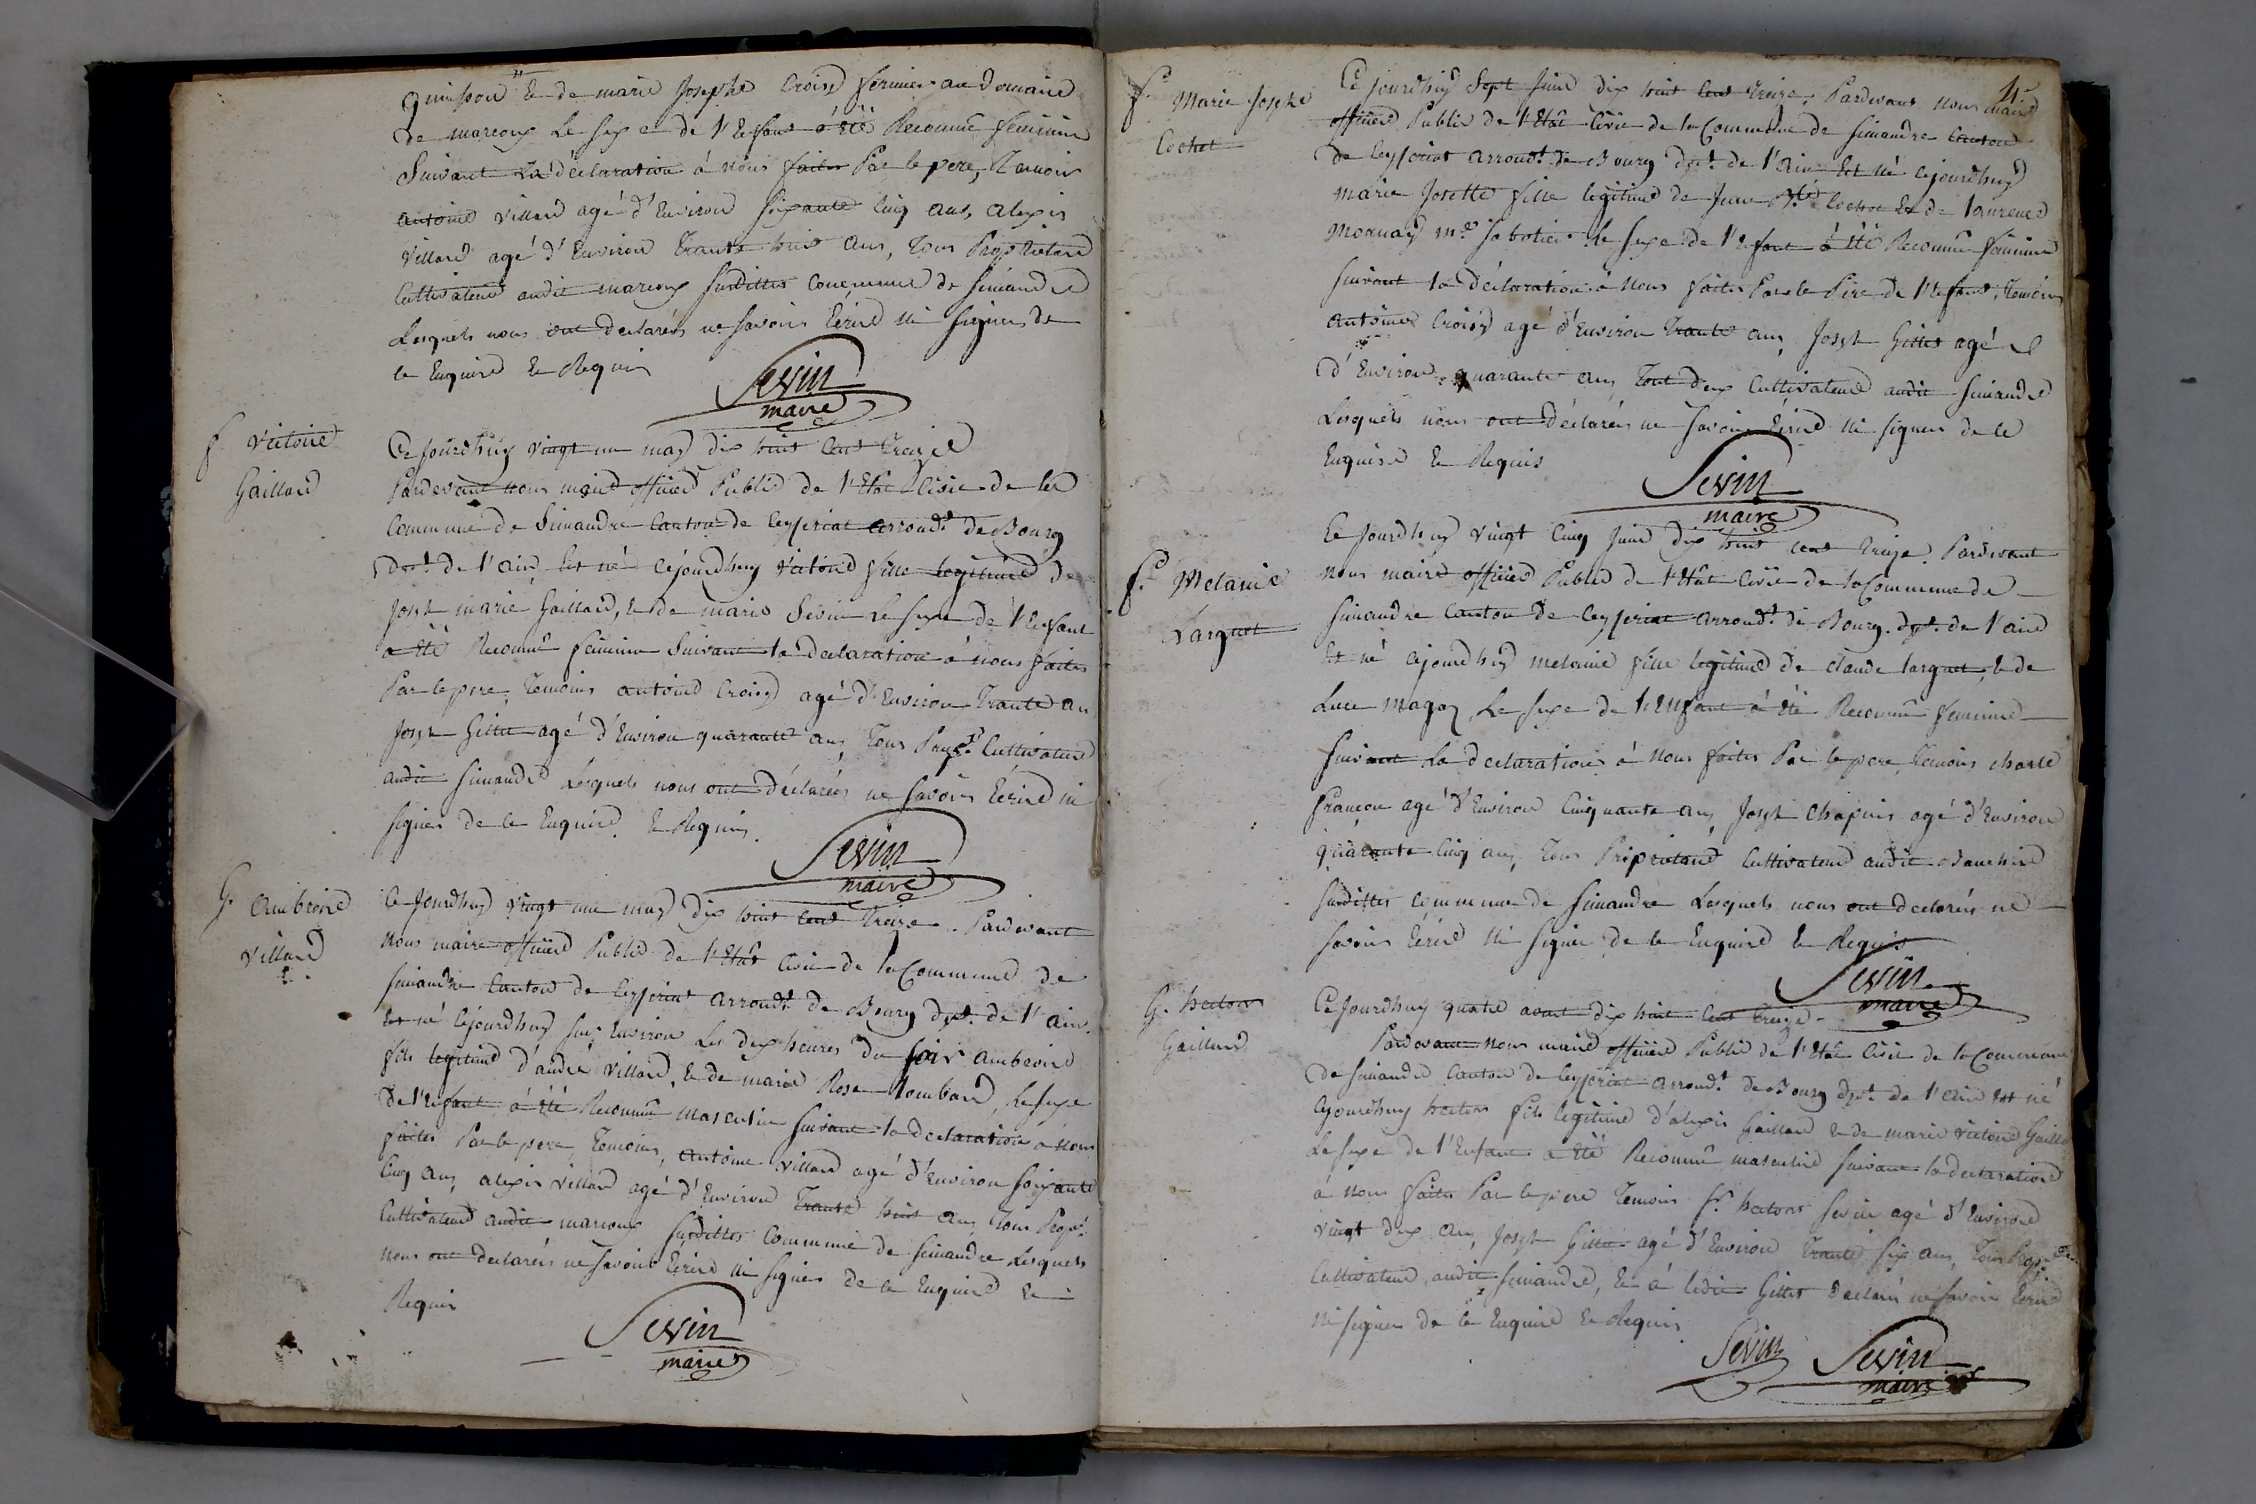 quinson & de marie Josephe Croisy fermier au Domaine
de marcoux Le sexe de l'Enfant a été Reconnû feminin
Suivant La déclaration á nous faites Par le pere, Temoins
antoine villard agé d'Environ soixante cinq ans, alexis
villard agé d'Environ Trante huit ans, Tous Propriétaire
Cultivateur audit marcoux susdittes commune de simandre
Lesquels nous ont declarés ne savoir Ecrire ni signer de
ce Enquird & Requis
Sevin
maire
f. victoire
Gaillard
Ce jourdhuy vingt un may dix huit cent Treize
Pardevant nous maire officier Public de l'Etat Civil de la
Commune de Simandre Canton de Ceyzeriat arrondt de Bourg
Dept. de l'ain, Est né cejourdhuy victoire fille legitime de
Josph marie Gaillard, & de marie Sevin Le sexe de l'Enfant
a été Reconnû feminin Suivant la declaration á nous faites
Par le pere, Temoins antoine Croisy agé d'Environ Trante an
Josph Gittet agé d'Environ quarante ans Tous Propre. Cultivateur
audit simandre Lesquels nous ont déclarés ne savoir Ecrire ni
signer de ce Enquird & Requis
Sevin
maire
G. ambroise
villard
Ce Jourdhuy vingt un may dix huit cent Treize. Pardevant
nous maire officier Public de l'Etat Civil de la Commune de
simandre Canton de Ceyzeriat arrondt de Bourg dept. de l'ain.
Est né Cejourdhuy sur Environ Les dix heures du soir ambroise
fils legitime d'andré villard, & de marie Rose Lombard, Le sexe
de l'Enfant á été Reconnû masculin suivant la declaration a nous
faites Par le pere, Temoins, antoine villard agé d'Environ soixante
Cinq ans, alexis villard agé d'Environ Trante huit ans Tous Propre.
Cultivateur audit marcoux susdittes Commune de simandre Lesquels
nous ont declarés ne savoir Ecrire ni signer de ce Enquird &
Requis
Sevin
maire
4e
f. Marie Josphe
Cochet
Ce jourdhuy Sept Juin dix huit cent treize, Pardevant nous maire
officier Public de l'Etat Civil de la Commune de simandre Canton
de Ceyzeriat arrondt. de Bourg dept. de l'ain Est né cejourdhuy
marie Josette fille legitime de Jean Bte Cochet & de laurence
mornay me. sabotier le sexe de l'Enfant á été Reconnû feminin
suivant la déclaration á nous faites Par le Pere de l'Enfant, Temoins
antoine Croisy agé d'Environ Trante ans, Josph Gittet agé
d'Environ quarante ans, Tout deux Cultivateur audit simandre
Lesquels nous ont déclarés ne savoir Ecrire ni signer de ce
Enquird & Requis
Sevin
maire
f. Melanie
Larguet
Ce Jourdhuy vingt Cinq Juin dix huit cent Treize. Pardevant
nous maire officier Public de l'Etat Civil de la Commune de
simandre Canton de Ceyzeriat arrondt. de Bourg. dept. de l'ain
Est né cejourdhuy melanie fille legitime de claude larguet, & de
Luce magoz, Le sexe de l'Enfant á été Reconnû feminin
suivant La declaration á nous faites Par le pere, Temoins charle
françon agé d'Environ Cinquante ans, Josph chapuis agé d'Environ
quarante Cinq ans, Tous Proprietaire Cultivateur audit
susdittes commune de simandre Lesquels nous ont declarés ne
savoir Ecrire ni signer de ce Enquird & Requis
Sevin
maire
G. hector
Gaillard
Ce Jourdhuy quatre aout dix huit Cent treize
Pardevant nous maire officier Public de l'Etat Civil de la Commune
de simandre Canton de Ceyzeriat arrondt. de Bourg dept. de l'ain Est né
Cejourdhuy hector fils legitime d'alexis Gaillard & de marie victoire Gaillard
Le sexe de l'Enfant a été Reconnû masculin suivant la declaration
á nous faites Par le pere Temoins fs. hector sevin agé d'Environ
vingt dix ans, Josph Gittet agé d'Environ Trante six ans, Tous Propre.
Cultivateur audit simandre, & á ledit Gittet declaré ne savoir Ecrire
ni signer de ce Enquird & Requis
Sevin Sevin
maire